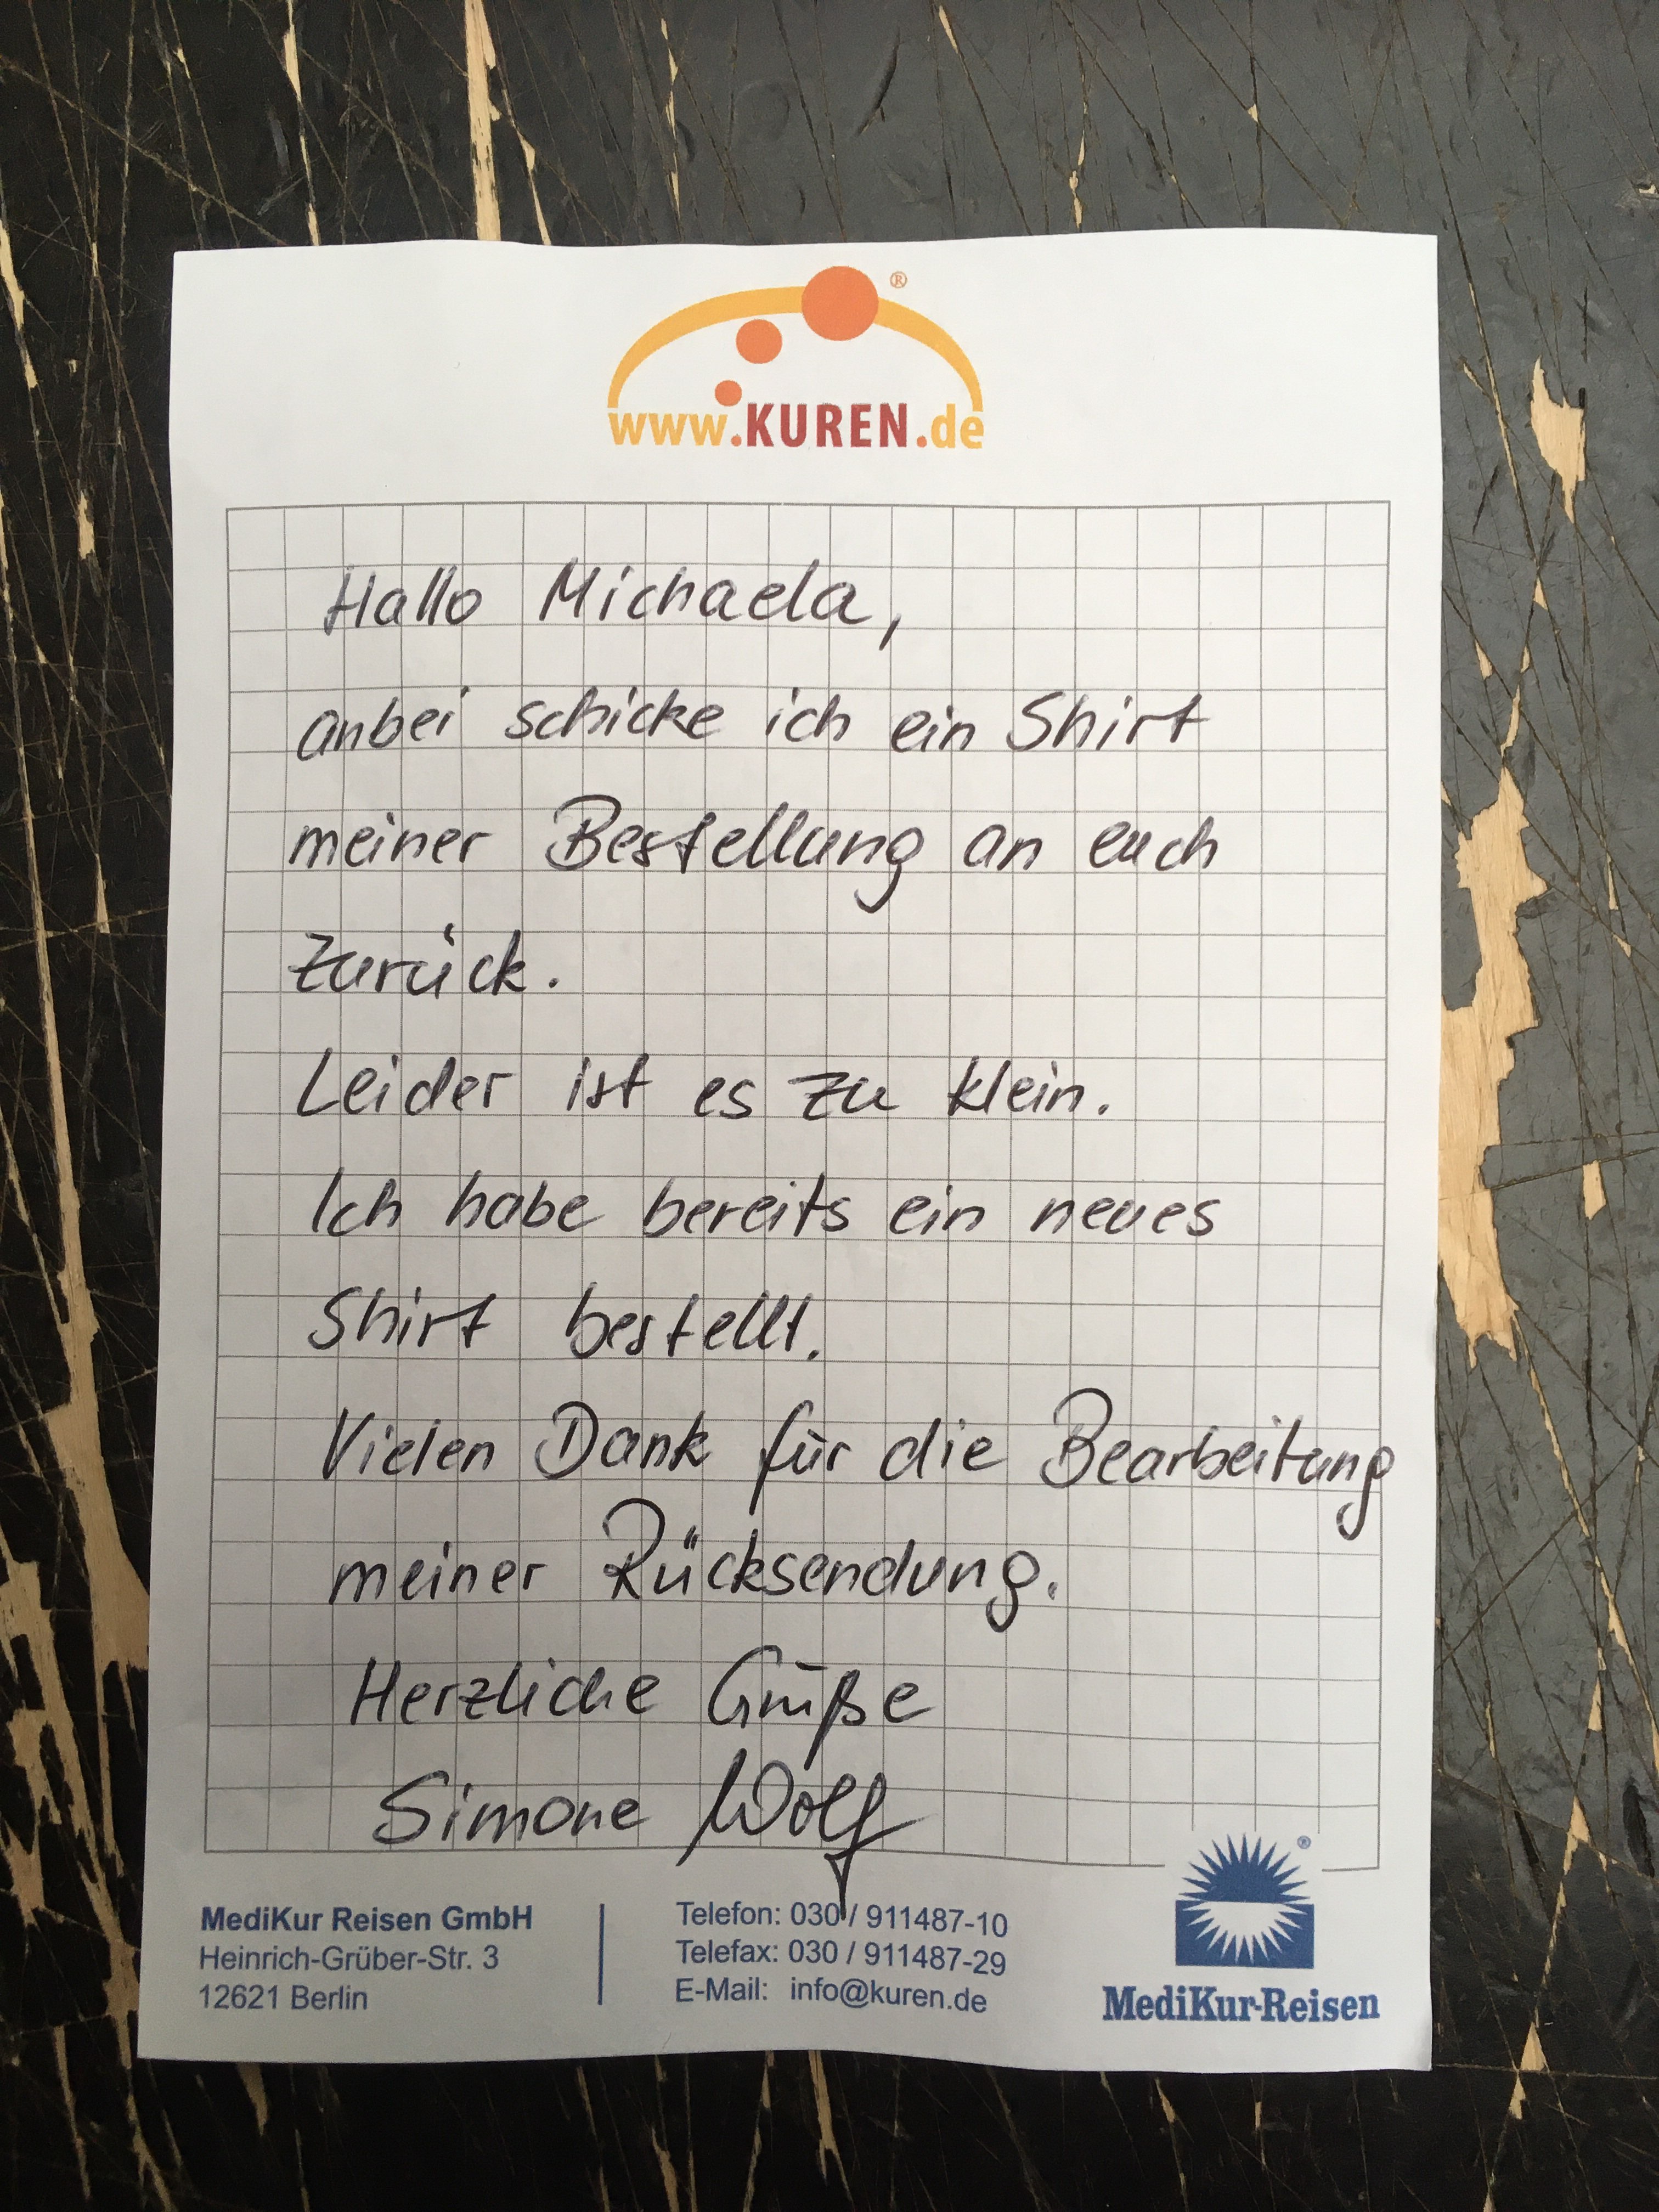 www.KUREN.de
®
Hallo Michaela,
anbei schicke ich ein Shirt
meiner Bestellung an euch
zurück.
Leider ist es zu klein.
Ich habe bereits ein neues
Shirt bestellt.
Vielen Dank für die Bearbeitung
meiner Rücksendung.
Herzliche Grüße
Simone Wolf
MediKur Reisen GmbH
Heinrich-Grüber-Str. 3
12621 Berlin
Telefon: 030 / 911487-10
Telefax: 030 / 911487-29
E-Mail: info@kuren.de
®
MediKur-Reisen